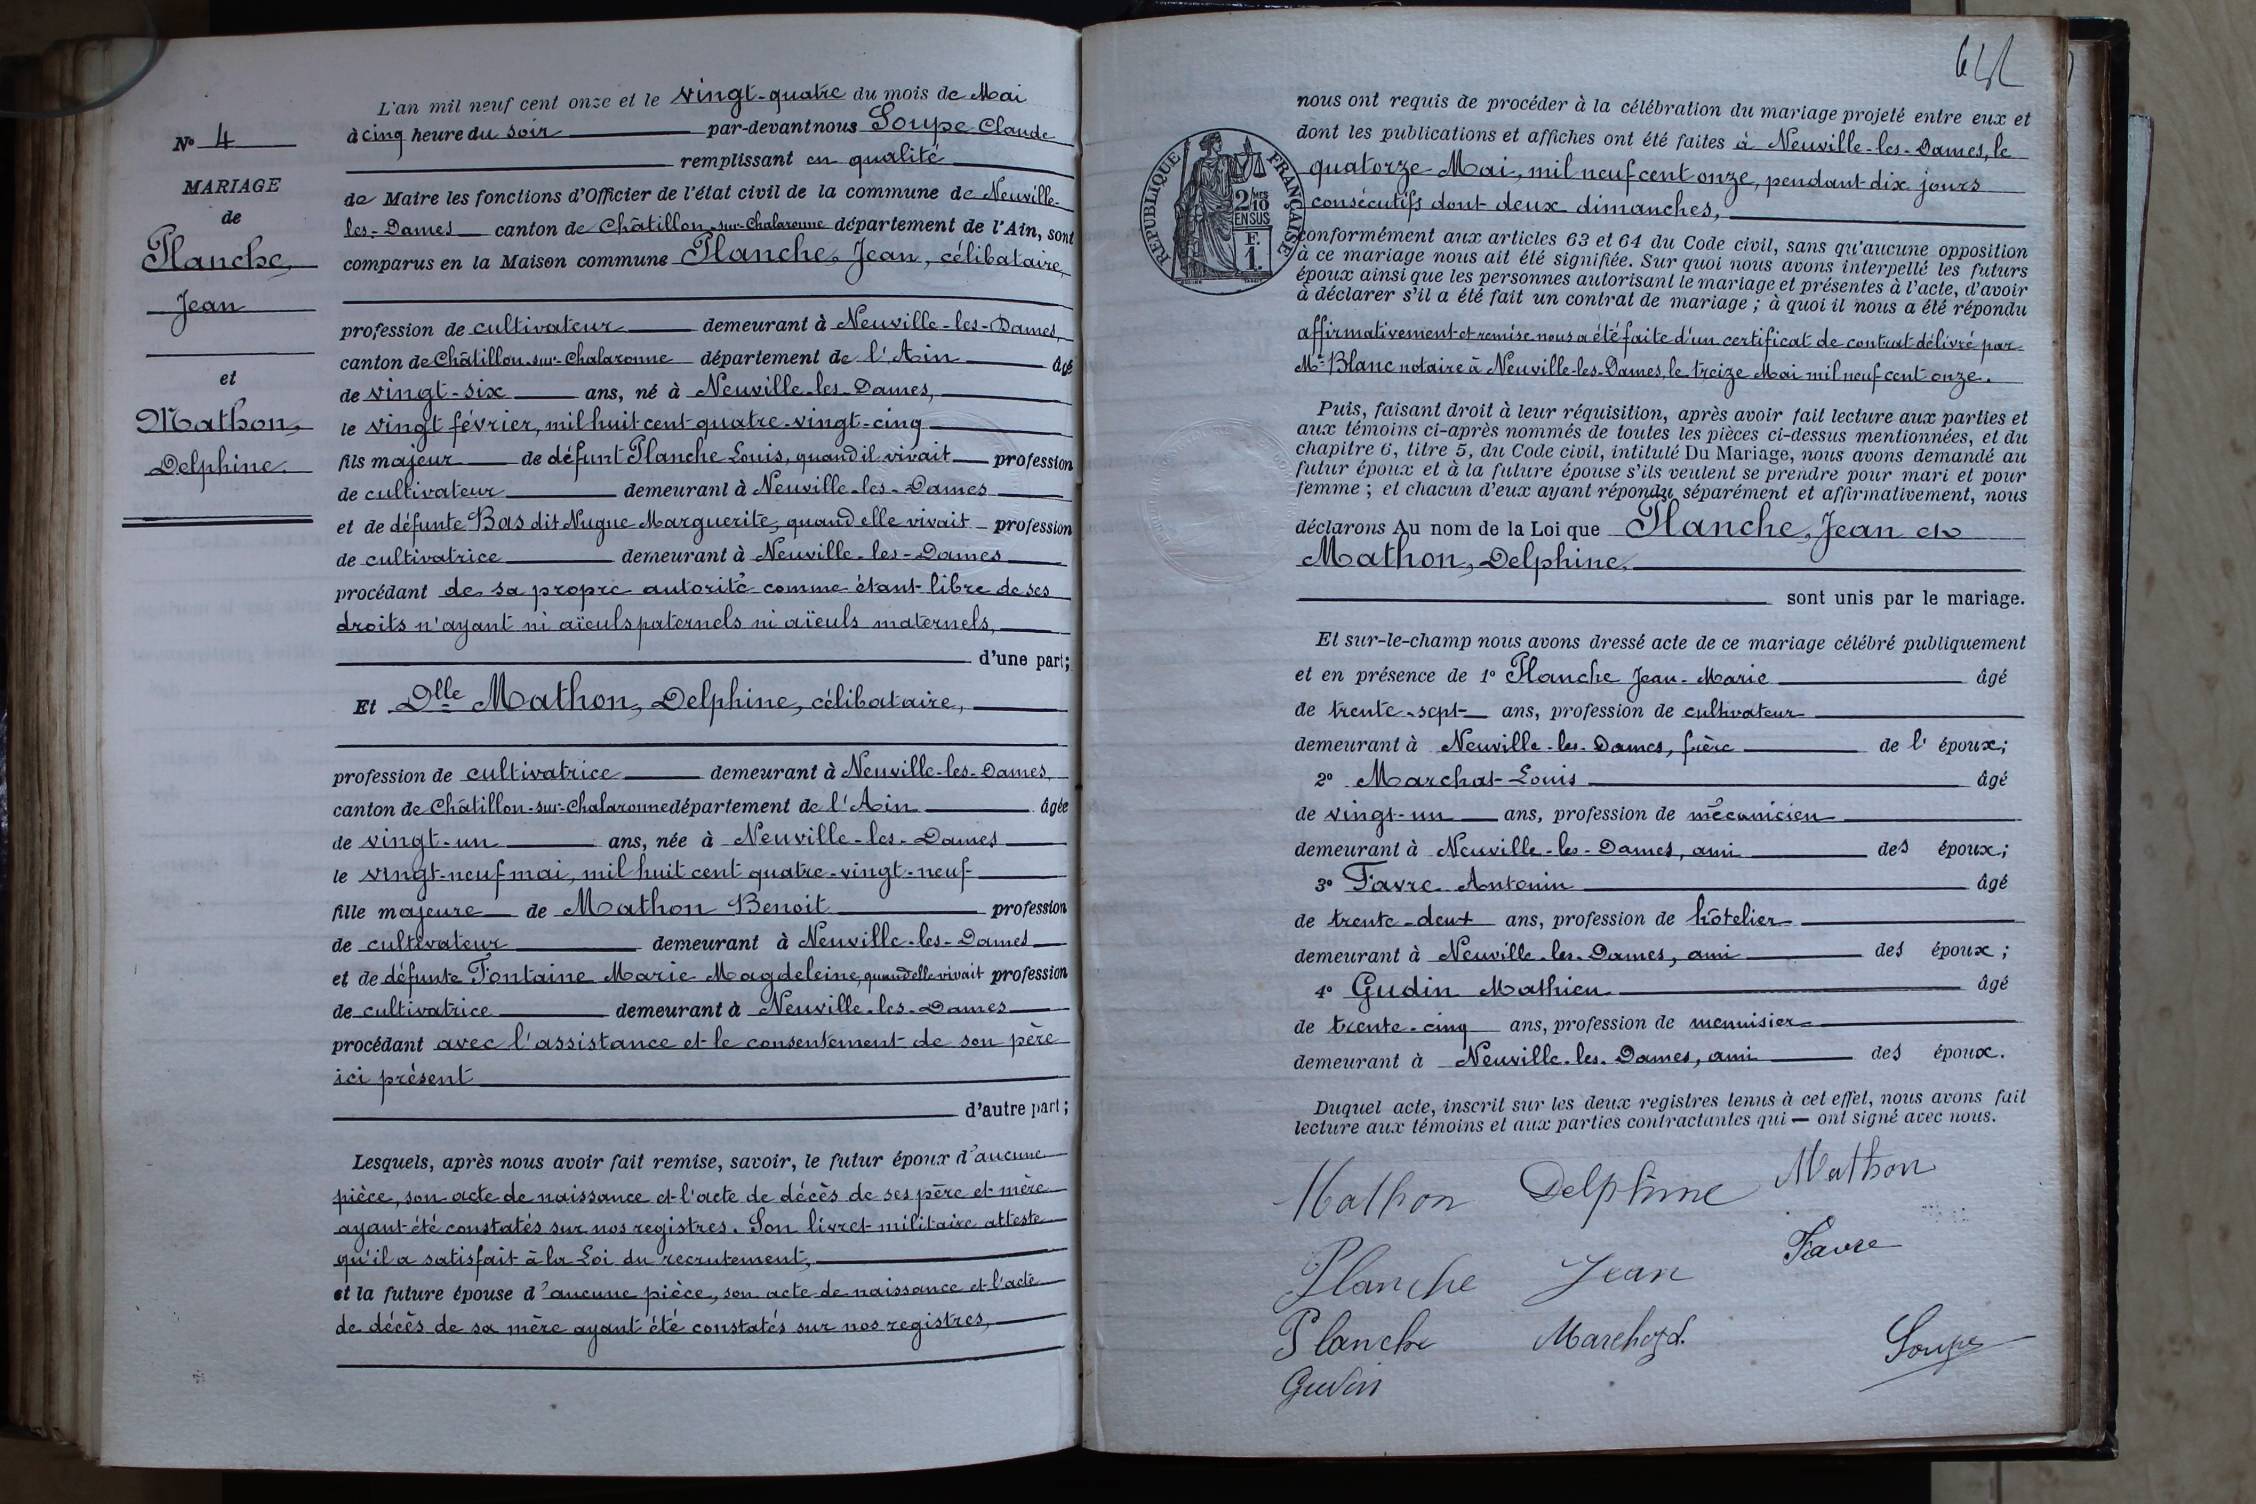 N° 4
MARIAGE
de
Planche,
Jean
et
Mathon,
Delphine.
L'an mil neuf cent onze et le vingt-quatre du mois de Mai
à cinq heure du soir par-devant nous Soupe Claude
remplissant en qualité
de Maire les fonctions d'Officier de l'état civil de la commune de Neuville-
les-Dames canton de Châtillon-sur-Chalaronne département de l'Ain, sont
comparus en la Maison commune Planche, Jean, célibataire,
profession de cultivateur demeurant à Neuville-les-Dames,
canton de Châtillon-sur-Chalaronne département de l'Ain âgé
de vingt-six ans, né à Neuville-les-Dames,
le vingt février, mil huit cent quatre-vingt-cinq
fils majeur de défunt Planche Louis, quand il vivait profession
de cultivateur demeurant à Neuville-les-Dames
et de défunte Bas dit Nugue Marguerite, quand elle vivait profession
de cultivatrice demeurant à Neuville-les-Dames
procédant de sa propre autorité comme étant libre de ses
droits n'ayant ni aïeuls paternels ni aïeuls maternels,
d'une part;
Et Dlle Mathon, Delphine, célibataire,
profession de cultivatrice demeurant à Neuville-les-Dames,
canton de Châtillon-sur-Chalaronne département de l'Ain âgée
de vingt-un ans, née à Neuville-les-Dames
le vingt-neuf mai, mil huit cent quatre-vingt-neuf
fille majeure de Mathon Benoit profession
de cultivateur demeurant à Neuville-les-Dames
et de défunte Fontaine Marie Magdeleine, quand elle vivait profession
de cultivatrice demeurant à Neuville-les-Dames
procédant avec l'assistance et le consentement de son père
ici présent
d'autre part;
Lesquels, après nous avoir fait remise, savoir, le futur époux d'aucune
pièce, son acte de naissance et l'acte de décès de ses père et mère
ayant été constatés sur nos registres. Son livret militaire atteste
qu'il a satisfait à la Loi du recrutement,
et la future épouse d'aucune pièce, son acte de naissance et l'acte
de décès de sa mère ayant été constatés sur nos registres,
RÉPUBLIQUE FRANÇAISE
2/10
EN SUS
F.
1.
nous ont requis de procéder à la célébration du mariage projeté entre eux et
dont les publications et affiches ont été faites à Neuville-les-Dames, le
quatorze Mai, mil neuf cent onze, pendant dix jours
consécutifs dont deux dimanches,
conformément aux articles 63 et 64 du Code civil, sans qu'aucune opposition
à ce mariage nous ait été signifiée. Sur quoi nous avons interpellé les futurs
époux ainsi que les personnes autorisant le mariage et présentes à l'acte, d'avoir
à déclarer s'il a été fait un contrat de mariage ; à quoi il nous a été répondu
affirmativement et remise nous a été faite d'un certificat de contrat délivré par
Me Blanc notaire à Neuville-les-Dames, le treize Mai mil neuf cent onze.
Puis, faisant droit à leur réquisition, après avoir fait lecture aux parties et
aux témoins ci-après nommés de toutes les pièces ci-dessus mentionnées, et du
chapitre 6, titre 5, du Code civil, intitulé Du Mariage, nous avons demandé au
futur époux et à la future épouse s'ils veulent se prendre pour mari et pour
femme ; et chacun d'eux ayant répondu séparément et affirmativement, nous
déclarons Au nom de la Loi que Planche, Jean et
Mathon, Delphine,
sont unis par le mariage.
Et sur-le-champ nous avons dressé acte de ce mariage célébré publiquement
et en présence de 1° Planche Jean-Marie âgé
de trente-sept ans, profession de cultivateur
demeurant à Neuville-les-Dames, frère de l'époux;
2° Marchat Louis âgé
de vingt-un ans, profession de mécanicien
demeurant à Neuville-les-Dames, ami des époux;
3° Favre Antonin âgé
de trente-deux ans, profession de hôtelier
demeurant à Neuville-les-Dames, ami des époux ;
4° Gudin Mathieu âgé
de trente-cinq ans, profession de menuisier
demeurant à Neuville-les-Dames, ami des époux.
Duquel acte, inscrit sur les deux registres tenus à cet effet, nous avons fait
lecture aux témoins et aux parties contractantes qui — ont signé avec nous.
Mathon Delphine Mathon
Planche Jean Favre
Planche Soupe
Gudin